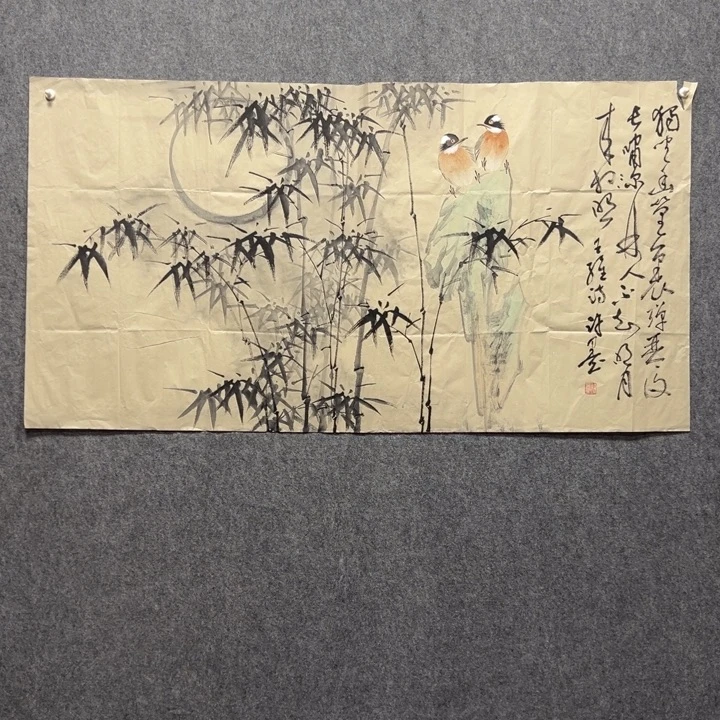 獨坐幽篁裏彈琴復
長嘯深林人不知明月
来相照 王維詩